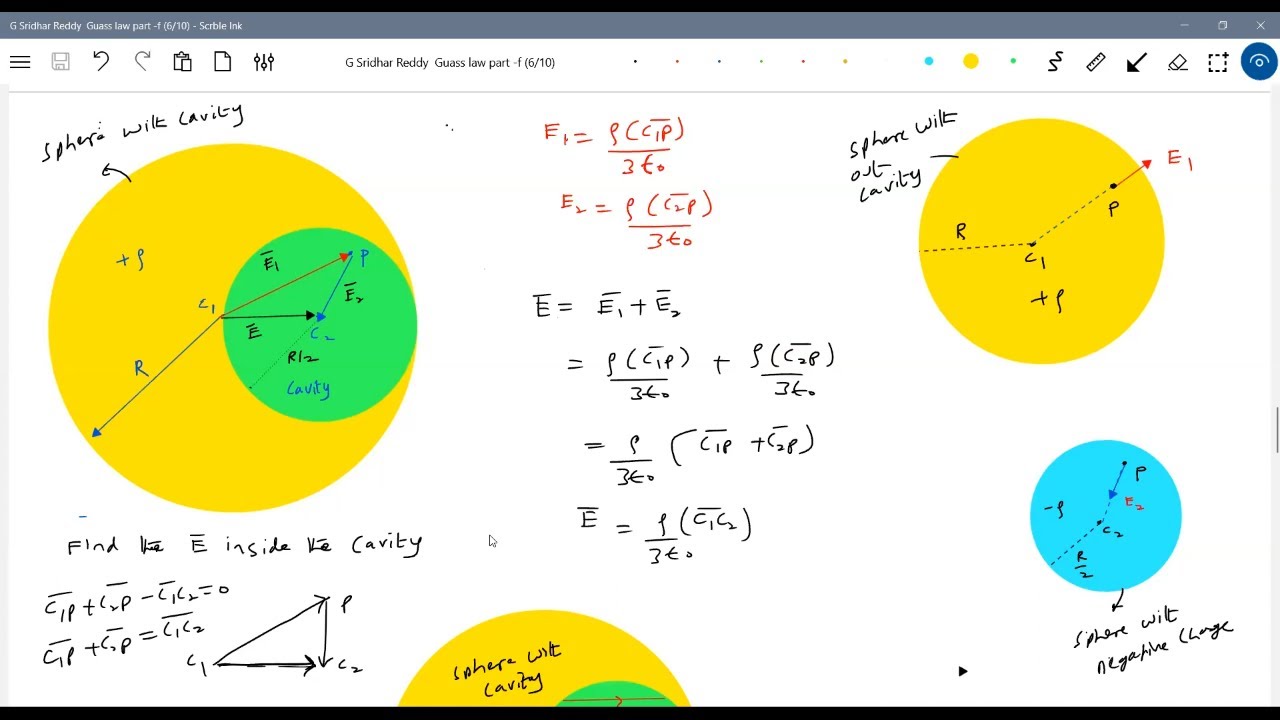 G Sridhar Reddy Guass law part -f (6/10) - Scrble Ink
G Sridhar Reddy Guass law part -f (6/10)
sphere with cavity
+ρ
R
C₁
E̅₁
E̅
P
E̅₂
C₂
R/2
cavity
Find the E̅ inside the cavity
C̅₁P̅ + C̅₂P̅ - C̅₁C̅₂ = 0
C̅₁P̅ + C̅₂P̅ = C̅₁C̅₂
C₁
P
C₂
E₁ = ρ(C̅₁P̅)/3ε₀
E₂ = ρ(C̅₂P̅)/3ε₀
E̅ = E̅₁ + E̅₂
= ρ(C̅₁P̅)/3ε₀ + ρ(C̅₂P̅)/3ε₀
= ρ/3ε₀ (C̅₁P̅ + C̅₂P̅)
E̅ = ρ(C̅₁C̅₂)/3ε₀
sphere with
out
cavity
E₁
P
R
C₁
+ρ
P
E₂
-ρ
C₂
R/2
sphere with
negative charge
sphere with
cavity